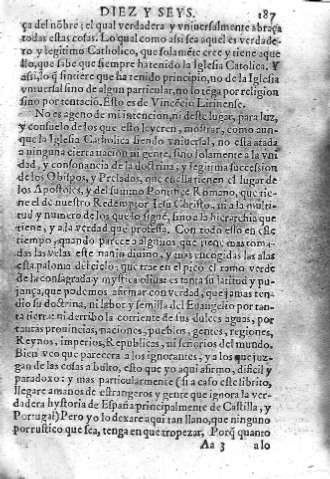 DIEZ Y SEYS. 187
ça del nõbre; el qual verdadera y vniuersalmente abraça
todas estas cosas. Lo qual como assi sea aquel es verdade-
ro y legitimo Catholico, que solamẽte cree y tiene aque
llo, que sabe que siempre ha tenido la Iglesia Catolica. Y
assi, lo q̃ sintiere que ha tenido principio, no de la Iglesia
vniuersal sino de algun particular, no lo tẽga por religion
sino por tentaciõ. Esto es de Vincẽcio Lirinense.
No es ageno de mi intencion, ni deste lugar, para luz,
y consuelo de los que esto leyeren, mostrar, como aun-
que la Iglesia Catholica siendo vniuersal, no está atada
a ninguna cierta nacion ni gente, sino solamente a la vni
dad, y consonancia de la doctrina; y legitima succession
de los Obispos, y Prelados, que en ella tienen el lugar de
los Apostoles, y del summo Pontifice Romano, que tie-
ne el de nuestro Redemptor Iesu Christo, ni a la multi-
tud y numero de los que lo siguẽ, sino a la hierarchia que
tiene, y a la verdad que professa. Con todo esso en este
tiempo, quando parece a algunos que tiene mas toma-
das las velas este nauio diuino, y mas encogidas las alas
esta paloma del cielo, que trae en el pico el ramo verde
de la consagrada y mystica oliua: es tanta su latitud y pu-
jança, que podemos afirmar con verdad, que jamas ten-
dio su doctrina, ni labor y semilla del Euangelio por tan-
ta tierra: ni derribó la corriente de sus dulces aguas, por
tantas prouincias, naciones, pueblos, gentes, regiones,
Reynos, imperios, Republicas, ni señorios del mundo.
Bien veo que parecera a los ignorantes, y a los que juz-
gan de las cosas a bulto, esto que yo aqui afirmo, dificil y
paradoxo: y mas particularmente (si a caso este librito,
llegare a manos de estrangeros y gente que ignora la ver-
dadera hystoria de España principalmente de Castilla, y
Portugal) Pero yo lo dexare aqui tan llano, que ninguno
por rustico que sea, tenga en que tropezar, Porq̃ quanto
Aa 3 a lo